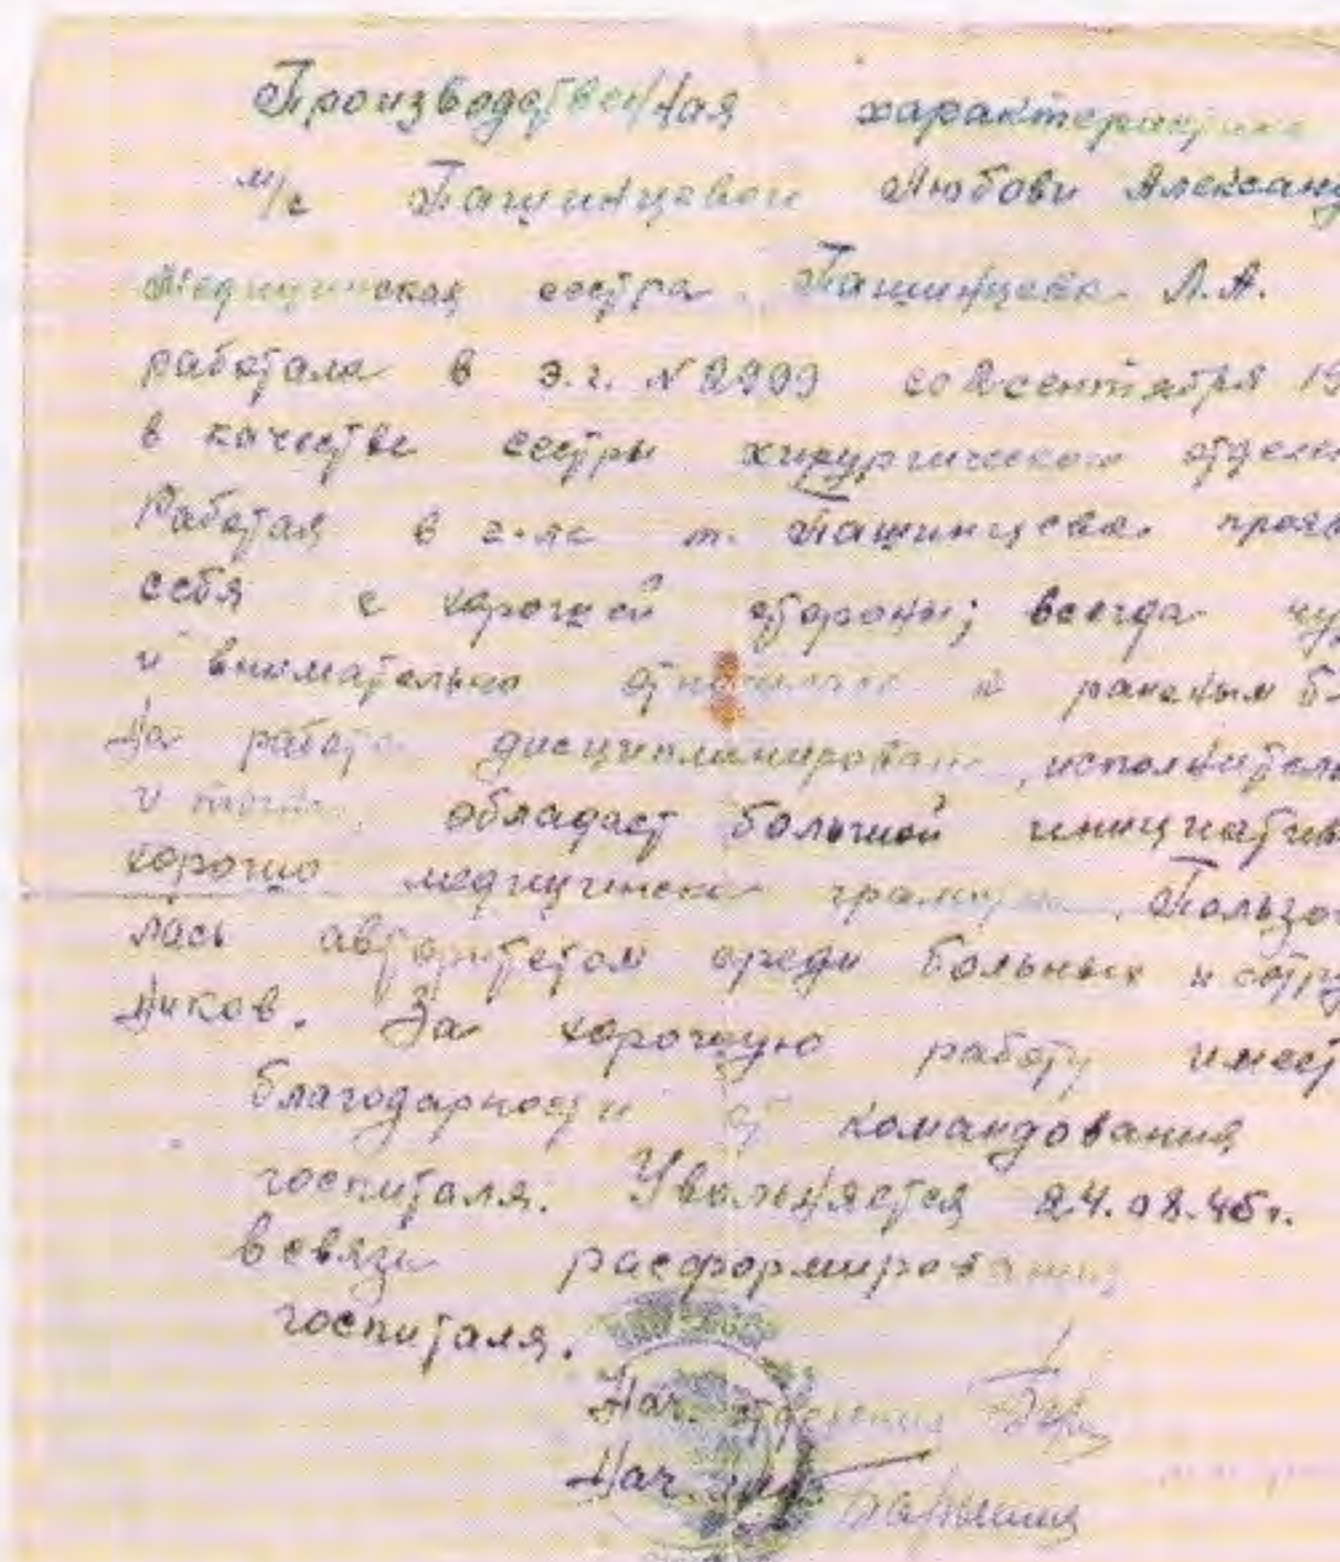 Производственная характеристика
м/с Пашинцевой Любови Александ
Медицинская сестра Пашинцева Л.А.
работала в э.г. № 2999 со 2 сентября 19
в качестве сестры хирургического отделе
Работая в г-ле т. Пашинцева прояв
себя с хорошей стороны; всегда чу
и внимательно относилась к раненым б
На работе дисциплинирована, исполнитель
и обладает большой инициатив
хорошо медицински грамотна. Пользова
лась авторитетом среди больных и сотруд
ников. За хорошую работу имеет
благодарности от командования
госпиталя. Увольняется 24.08.45г.
в связи расформирования
госпиталя.
Нач. отделения
Нач.